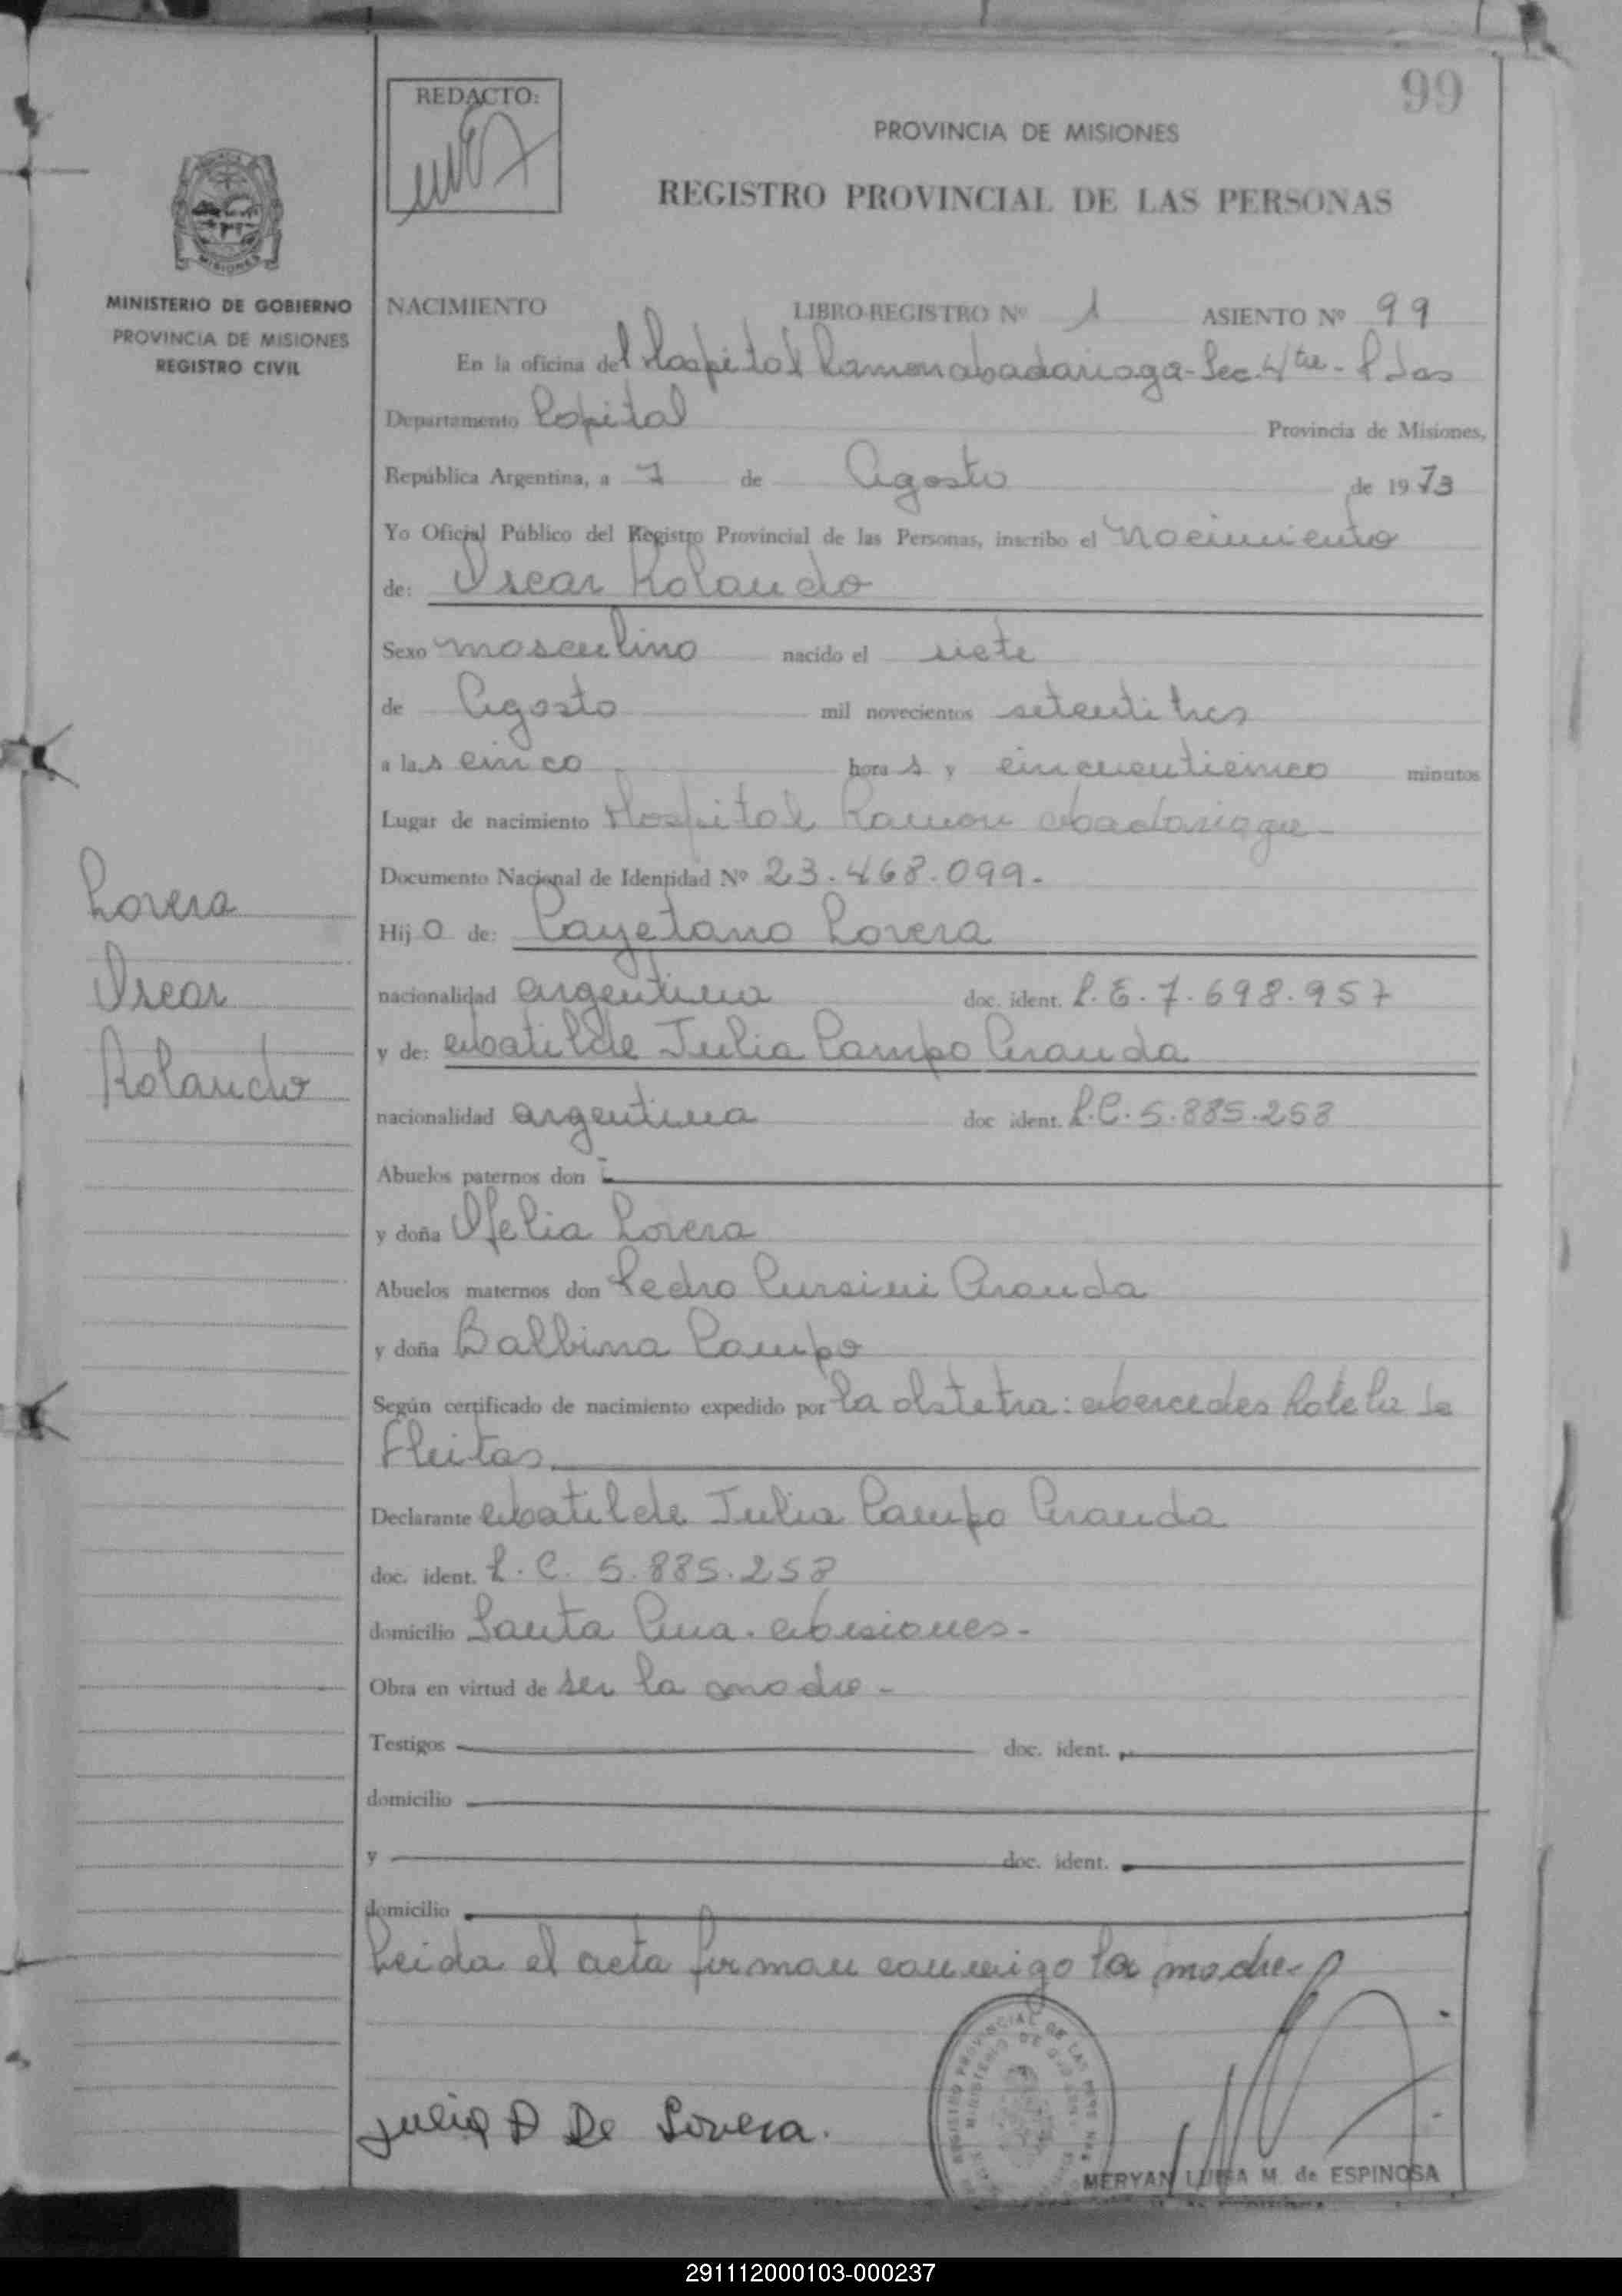 99
REDACTO:
PROVINCIA DE MISIONES
REGISTRO PROVINCIAL DE LAS PERSONAS
MISIONES
MINISTERIO DE GOBIERNO
PROVINCIA DE MISIONES
REGISTRO CIVIL
NACIMIENTO LIBRO-REGISTRO Nº 1 ASIENTO Nº 99
En la oficina del Hospital Ramon Madariaga - Sec. 4ta - Pdas
Departamento Capital Provincia de Misiones,
República Argentina, a 7 de Agosto de 1973
Yo Oficial Público del Registro Provincial de las Personas, inscribo el nacimiento
de: Oscar Rolando
Sexo masculino nacido el siete
de Agosto mil novecientos setentitres
a las cinco horas y cincuenticinco minutos
Lugar de nacimiento Hospital Ramon Madariaga
Documento Nacional de Identidad Nº 23.468.099.-
Lovera
Oscar
Rolando
Hijo de: Cayetano Lovera
nacionalidad argentina doc. ident. L.E. 7.698.957
y de: Matilde Julia Campo Aranda
nacionalidad argentina doc ident. L.C. 5.885.258
Abuelos paternos don
y doña Ofelia Lovera
Abuelos maternos don Pedro Aranda
y doña Balbina Campo
Según certificado de nacimiento expedido por la obstetra: Mercedes Rotela de
Fleitas
Declarante Matilde Julia Campo Aranda
doc. ident. L.C. 5.885.258
domicilio Santa Ana. Misiones.-
Obra en virtud de ser la madre -
Testigos doc. ident.
domicilio
y doc. ident.
domicilio
Leida el acta firman conmigo la madre.
Julia A De Lovera.
REGISTRO PROVINCIAL DE LAS PERSONAS
MINISTERIO DE GOBIERNO
MERYAN LUISA M. de ESPINOSA
291112000103-000237